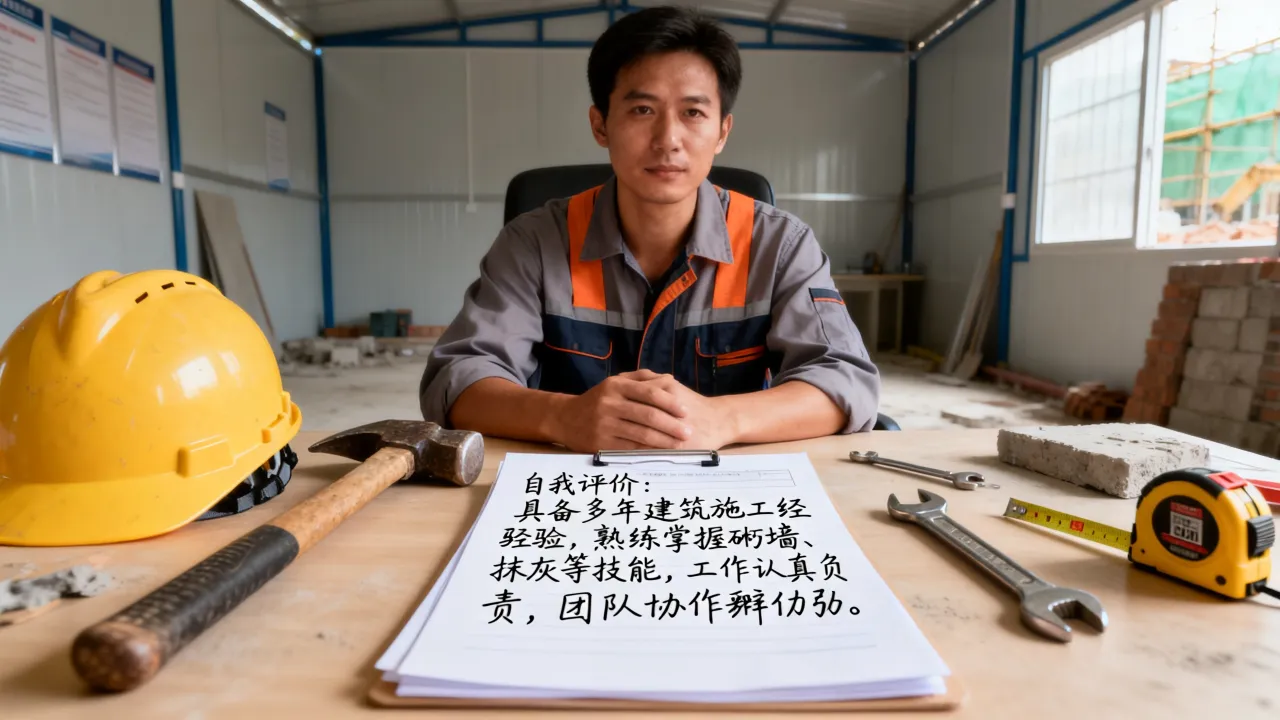 自我评价:
具备多年建筑施工经
经验,熟练掌握砌墙、
抹灰等技能,工作认真负
责,团队协作